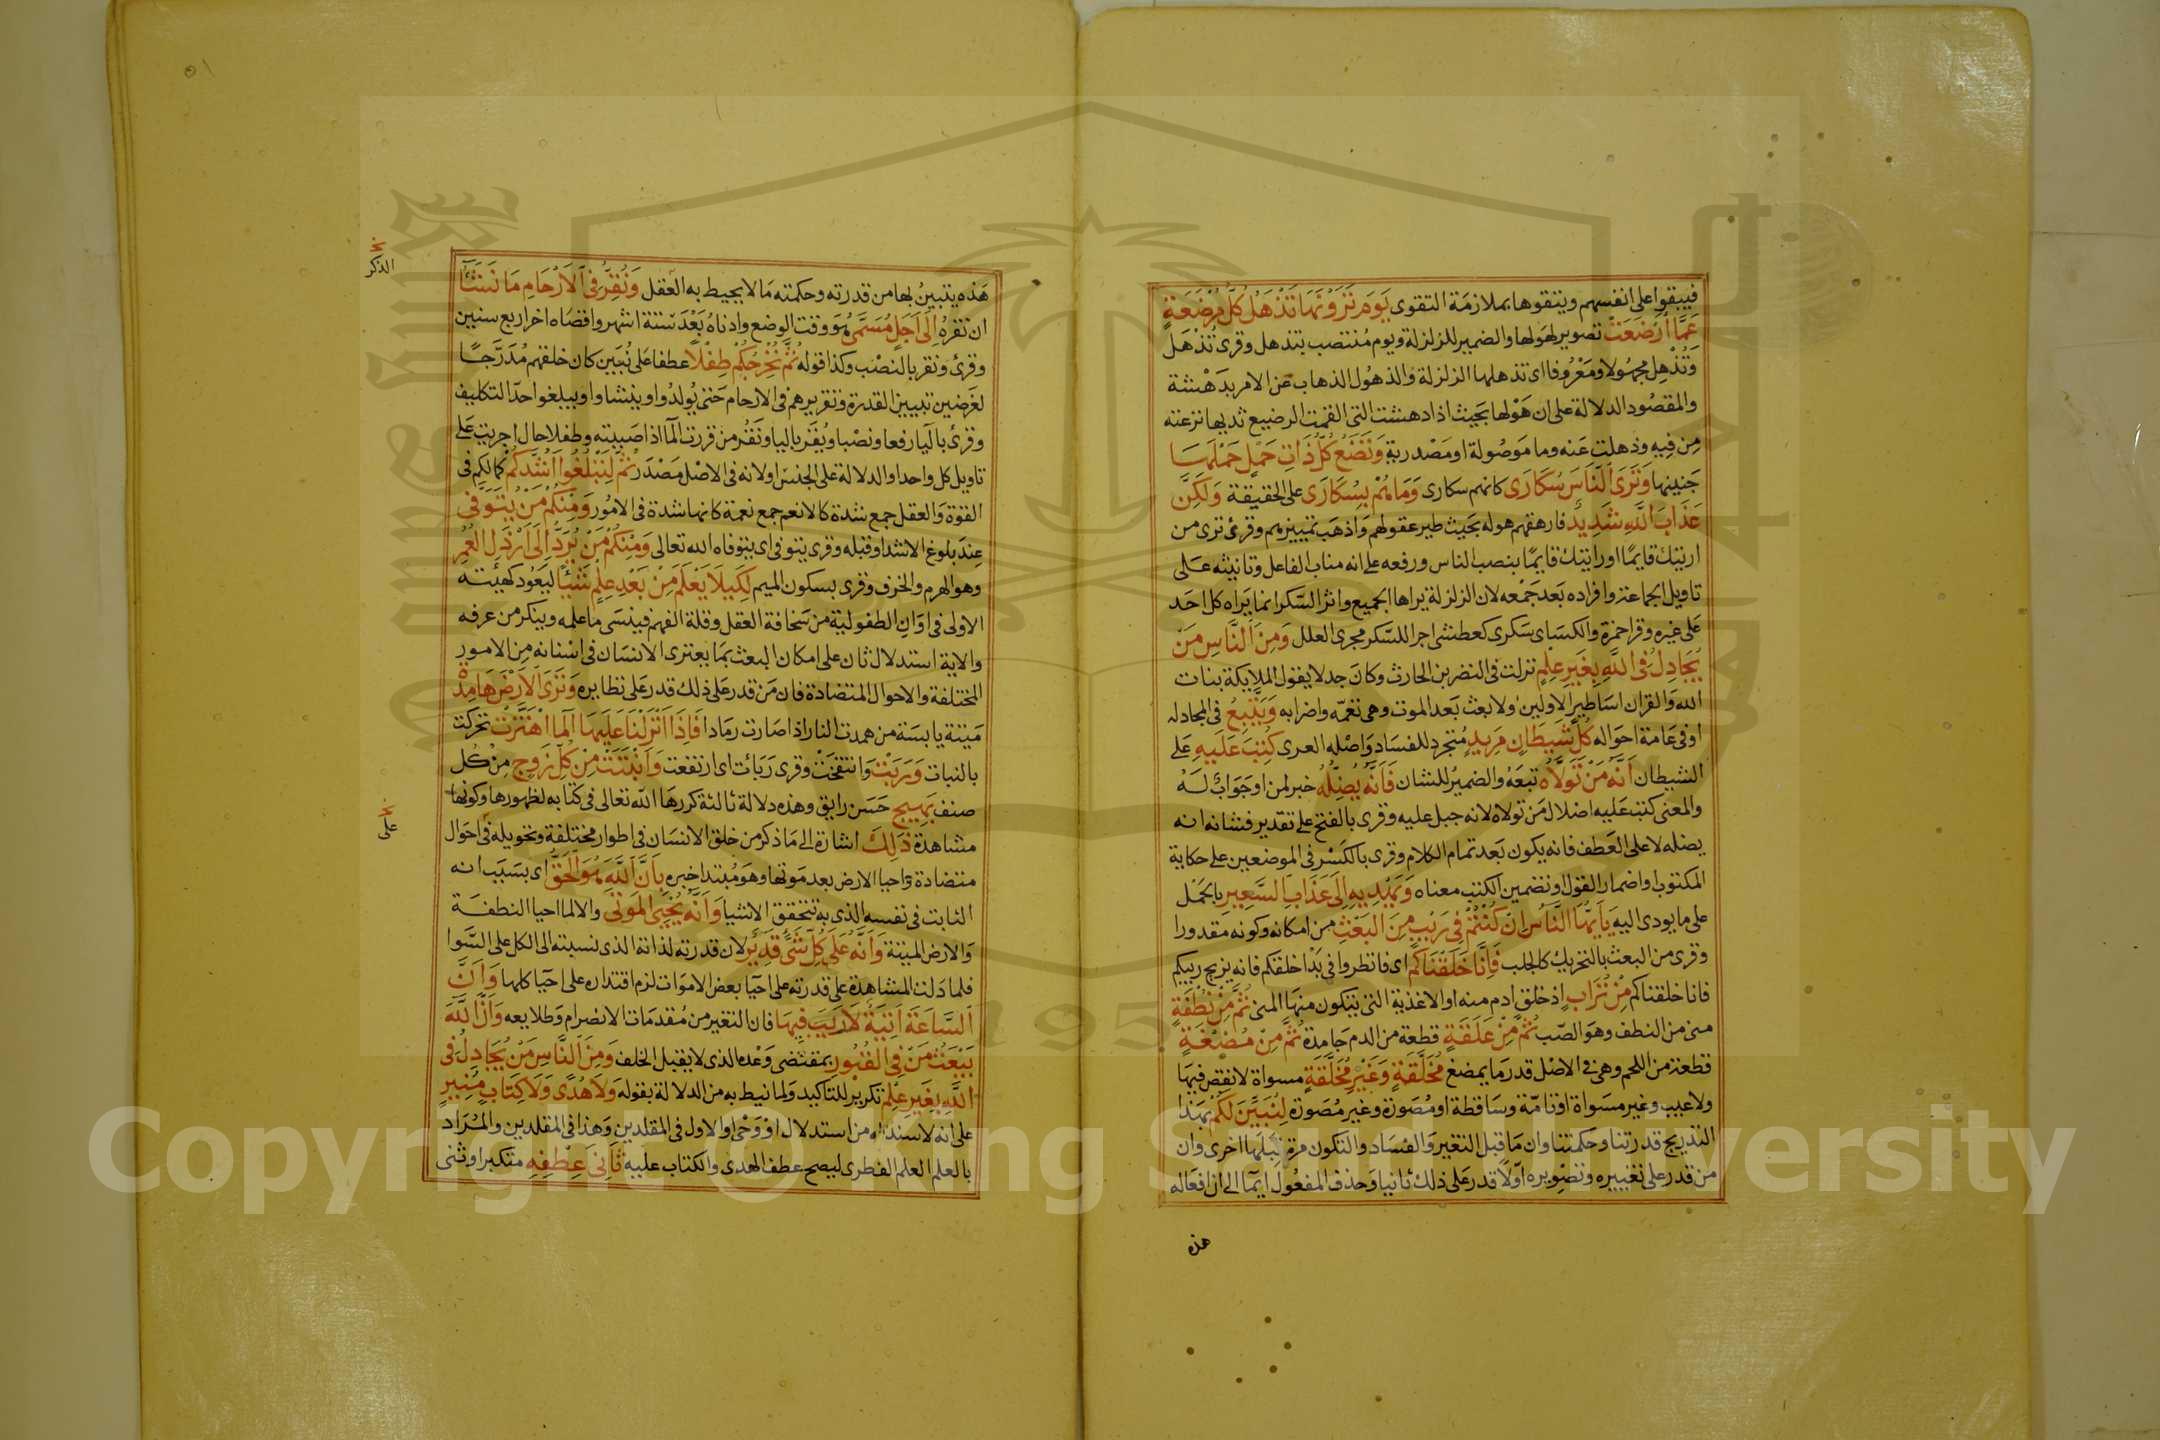 فيبقوا على انفسهم ويتقوها بملازمة التقوى يَومَ تَرَوْنَهَا تَذْهَلُ كُلُّ مُرْضِعَةٍ
عَمَّا اَرْضَعَتْ تصوير لهولها والضمير للزلزلة ويوم منتصب بتذهل وقرئ تُذْهَل
وَتُذْهِل مجهولا ومَعْرُوفا اى تذهلها الزلزلة والذهُول الذهاب عن الامر بدَهْشة
والمقصود الدلالة على ان هَوْلها بحَيث اذا دهشت التى القمت الرضيع ثديها نزعته
مِن فيه وذهلت عَنه وما مَوصُولة او مَصْدرية وَتَضَعُ كُلُّ ذَاتِ حَمْلٍ حَمْلَهَا
جَنينها وَتَرَى النَّاسَ سُكَارَى كانهم سكارى وَمَا هُمْ بِسُكَارَى على الحقيقة وَلَكِنَّ
عَذَابَ اللَّهِ شَدِيدٌ فارهقهم هوله بحَيث طير عقولهم وَاذهَب تمييزهم وقرئ ترى من
اريتك قايمًا او رايتك قايمًا بنصب الناس ورفعه على انه مناب الفاعل وتانيثه عَلى
تاويل الجماعة وافراده بَعد جَمْعه لان الزلزلة يراها الجميع واثر السّكر انما يَراه كل احَد
عَلى غيره وقرا حمزة والكسَاى سَكرى كعطشى اجرا للسّكر مجرى العلل وَمِنَ النَّاسِ مَنْ
يُجَادِلُ فِى اللَّهِ بِغَيرِ عِلْمٍ نزلت فى النضر بن الحارث وكانَ جدلا يقول الملايكة بنات
الله وَالقران اسَاطير الاولينْ ولا بعث بَعد الموت وهى تعمّه واضرابه وَيَتَّبِعُ فى المجادله
اوفى عَامة احَواله كُلَّ شَيطَانٍ مَرِيدٍ مُتجرد للفسَاد وَاصْله العرى كُتِبَ عَلَيهِ عَلى
الشيطان اَنَّهُ مَنْ تَوَلَّاهُ تبعَهُ والضميرُ للشان فَاَنَّهُ يُضِلُّهُ خبر لمن او جَوَابٌ لَهُ
والمعنى كتب عَليه اضلال مَن تولاه لانه جبل عليه وقرى بالفتح على تقدير فشانه انه
يضله لا على العَطف فانه يكون بَعد تمام الكلام وقرى بالكَسْر فى الموضعين على حكاية
المكتوب او اضمار القول او تضمين الكتب معناه وَيَهْدِيهِ اِلَى عَذَابِ السَّعِيرِ بالحمْل
على ما يودى اليه يَا اَيُّهَا النَّاسُ اِنْ كُنْتُمْ فِى رَيْبٍ مِنَ البَعْثِ من امكانه وكونه مقدورا
وقرى من البعث بالتحريك كالجلب فَاِنَّا خَلَقْنَاكُمْ اى فانظروا فى بَدْا خلقكم فانه يزيح ريبكم
فانا خلقناكم مِنْ تُرَابٍ اذ خلق ادم منه او الاغذية التى يتكون منهَا المنى ثُمَّ مِنْ نُطْفَةٍ
منى من النطف وهوَ الصّب ثُمَّ مِنْ عَلَقَةٍ قطعة من الدم جَامدة ثُمَّ مِنْ مُضْغَةٍ
قطعة من اللحم وهى فى الاصْل قدر مَا يمضغ مُخَلَّقَةٍ وَغَيْرِ مُخَلَّقَةٍ مسواة لا نقص فيهَا
ولا عيب وغير مسَواة او تامّة وسَاقطة او مُصَوّرة وغير مُصَوّرة لِنُبَيِّنَ لَكُمْ بهَذا
التدريج قدرتنا وحكمتنا وان مَا قبل التغير وَالفسَاد والتكون مرة قبلها اخرى وان
من قدر على تغييره وتصْويره اوّلا قدر عَلى ذلك ثانيا وحذف المفعُول ايمَا الى ان افعاله
هذه
هَذه يتبينُ بها من قدرته وحكمته مَا لا يحيط به العَقل وَنُقِرُّ فِى الْاَرْحَامِ مَا نَشَآءُ
ان نقرهُ اِلَى اَجَلٍ مُسَمًّى هُوَ وقت الوضع وادناهُ بَعْدَ ستة اشهر واقصَاه اخر اربع سنين
وقرئ ونقر بالنصْب وكذا قوله ثُمَّ نُخْرِجُكُمْ طِفْلًا عطفا عَلى نُبَين كان خلقهم مُدَرَّجًا
لغرضين تبيين القدرة وتقريرهم فى الارحام حَتى يُولدُوا وينشاوا ويبلغوا حدّ التكليف
وقرئ باليا رفعا ونصْبا ويُقر باليا ونَقُر من قررت المآ اذا صَببته وطفلا حال اجريت على
تاويل كل واحد او الدلالة على الجنسْ او لانه فى الاصْل مَصْدَر ثُمَّ لِتَبْلُغُوا اَشُدَّكُمْ كمالكم فى
القوّة وَالعقل جمع شدة كالانعم جمع نعمة كانها شدة فى الامُور وَمِنكُمْ مَنْ يُتَوَفَّى
عِندَ بلوغ الاشد او قبله وقرى يتوفى اى يتوفاه الله تعالى وَمِنكُمْ مَنْ يُرَدُّ اِلَى اَرْذَلِ العُمُرِ
وهو الهرم والخرف وقرى بسكون الميم لِكَيلَا يَعْلَمَ مِنْ بَعْدِ عِلْمٍ شَيْئًا ليَعُود كهيئته
الاولى فى اوَانِ الطفولية من سَخافة العقل وقلة الفهم فينسَى مَا علمه وينكر من عرفه
والاية استدلال ثان على امكان البعث بمَا يعترى الانسَان فى اسْنانه من الامور
المختلفة والاحوال المتضادة فان مَن قدر عَلى ذلك قدر عَلى نظايره وَتَرَى الْاَرْضَ هَامِدَةً
مَيتة يابسَة من همدت النار اذا صَارت رمَادا فَاِذَا اَنْزَلْنَا عَلَيهَا الْمَآ اهْتَزَّتْ تحركت
بالنبات وَرَبَتْ وَانتفخَتْ وقرى رَبَات اى ارتفعت وَاَنْبَتَتْ مِنْ كُلِّ زَوجٍ مِنْ كُل
صنف بَهِيجٍ حَسَن رايق وهذه دلالة ثالثة كررها الله تعالى فى كتابه لظهورها وكونها
مشاهدة ذَلِكَ اشارة الى مَا ذكر من خلق الانسَان فى اطوار مختلفة وتحويله فى احَوال
متضادة واحيا الارض بعد مَوتها وهوَ مُبتدا خبره بِاَنَّ اللَّهَ هُوَ الْحَقُّ اى بسَبَب انه
الثابت فى نفسه الذى به تتحقق الاشيا وَاَنَّهُ يُحْيِى المَوْتَى والا لما احيا النطفَة
والارض الميتة وَاَنَّهُ عَلَى كُلِّ شَىْءٍ قَدِيرٌ لان قدرته لذاته الذى نسبته الى الكل على السَّوا
فلما دَلت المشاهدة على قدرته على احيَآ بعض الاموَات لزم اقتداره على احيَا كلها وَاَنَّ
السَّاعَةَ آتِيَةٌ لَا رَيبَ فِيهَا فان التغير من مُقدمَات الانصرام وَطلايعه وَاَنَّ اللَّهَ
يَبْعَثُ مَنْ فِى القُبُورِ بمقتضى وَعْده الذى لا يقبل الخلف وَمِنَ النَّاسِ مَنْ يُجَادِلُ فِى
اللَّهِ بِغَيرِ عِلْمٍ تكريرٌ للتاكيد وَلما نيط به من الدلالة بقوله وَلَا هُدًى وَلَا كِتَابٍ مُنِيرٍ
على انه لا سندَ له من استدلال اوْ وَحْى او الاول فى المقلدين وَهَذا فى المقلدين والمُرَاد
بالعلم العلم الفطرى ليصح عطف الهدى والكتاب عليه ثَانِىَ عِطْفِهِ متكبرا وثنى
نخ
الذكر
نخ
على
٥١
Copyright © King Saud University